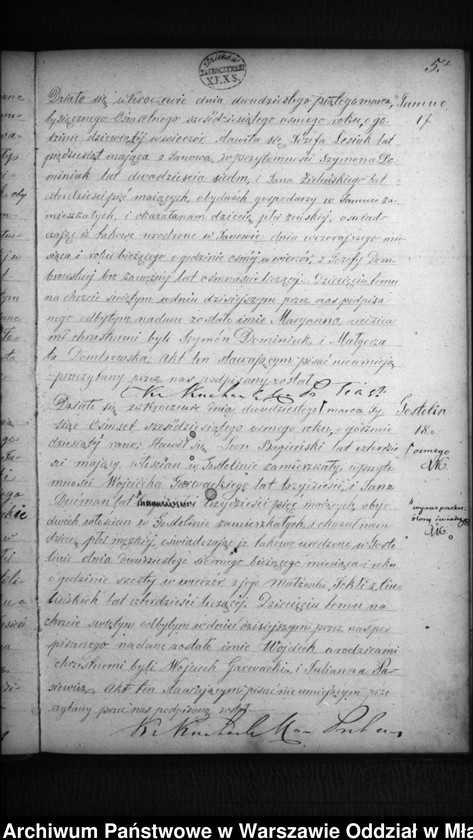 5.
Parafia
ZAKROCZYMSKI
X.F.X.S.
Działo się w Kroczewie dnia dwudziestego piątego marca,
tysiącznego Ośmsetnego sześćdziesiątego osmego roku, o go-
dzinie dziewiątej wieczór. Stawiła się Józefa Lesiak lat
pięćdziesiąt mająca z Janowa, w przytomności Szymona Do-
miniak lat dwadzieścia siedm, i Jana Zielińskiego lat
czterdzieści pięć mających, obydwóch gospodarzy w Janowie za-
mieszkałych i okazała nam dziecię płci żeńskiej, oświad-
czając iż takowe urodzone w Janowie dnia wczorajszego mie-
siąca i roku bieżącego o godzinie ósmej wieczór, z Józefy Dom-
browskiej bez zamężnej lat ośmnaście liczącej. Dziecięciu temu
na chrzcie świętym w dniu dzisiejszym przez nas podpisa-
nego odbytym nadane zostało imie Maryanna, rodzica-
mi chrzestnemi byli Szymon Dominiak i Małgorza-
ta Dombrowska. Akt ten stawającym pisać nieumieją-
przeczytany przez nas podpisany został
Janowo
17
Działo się w Kroczewie dnia dwudziestego marca ty-
siąc Ośmset sześćdziesiątego osmego roku, o godzinie
dziesiątej rano. Stawił się Leon Bagieński lat czterdzie-
ści mający, włościan w Gostolinie zamieszkały, w przyto-
mności Wojciecha Gacowackiego lat trzydzieści, i Jana
Ducman lat trzydzieści pięć mających, oby-
dwóch włościan w Gostolinie zamieszkałych i okazał nam
dziecię płci męzkiej, oświadczając iż takowe urodzone w Gosto-
linie dnia dwudziestego siódmego bieżącego miesiąca i roku
o godzinie szóstej w wieczór z jego Małżonki Tekli z Lu-
bińskich lat czterdzieści liczącej. Dziecięciu temu na
chrzcie świętym odbytym w dniu dzisiejszym przez nas pod-
pisanego nadane zostało imie Wojciech, a rodzicami
chrzestnemi byli Wojciech Gacowacki i Julianna Pa-
siewicz. Akt ten stawiającym pisać nieumiejącym prze-
czytany przez nas podpisany został
Gostolin
18.
osmego
wyraz przekre-
ślony
Archiwum Państwowe w Warszawie Oddział w Mła